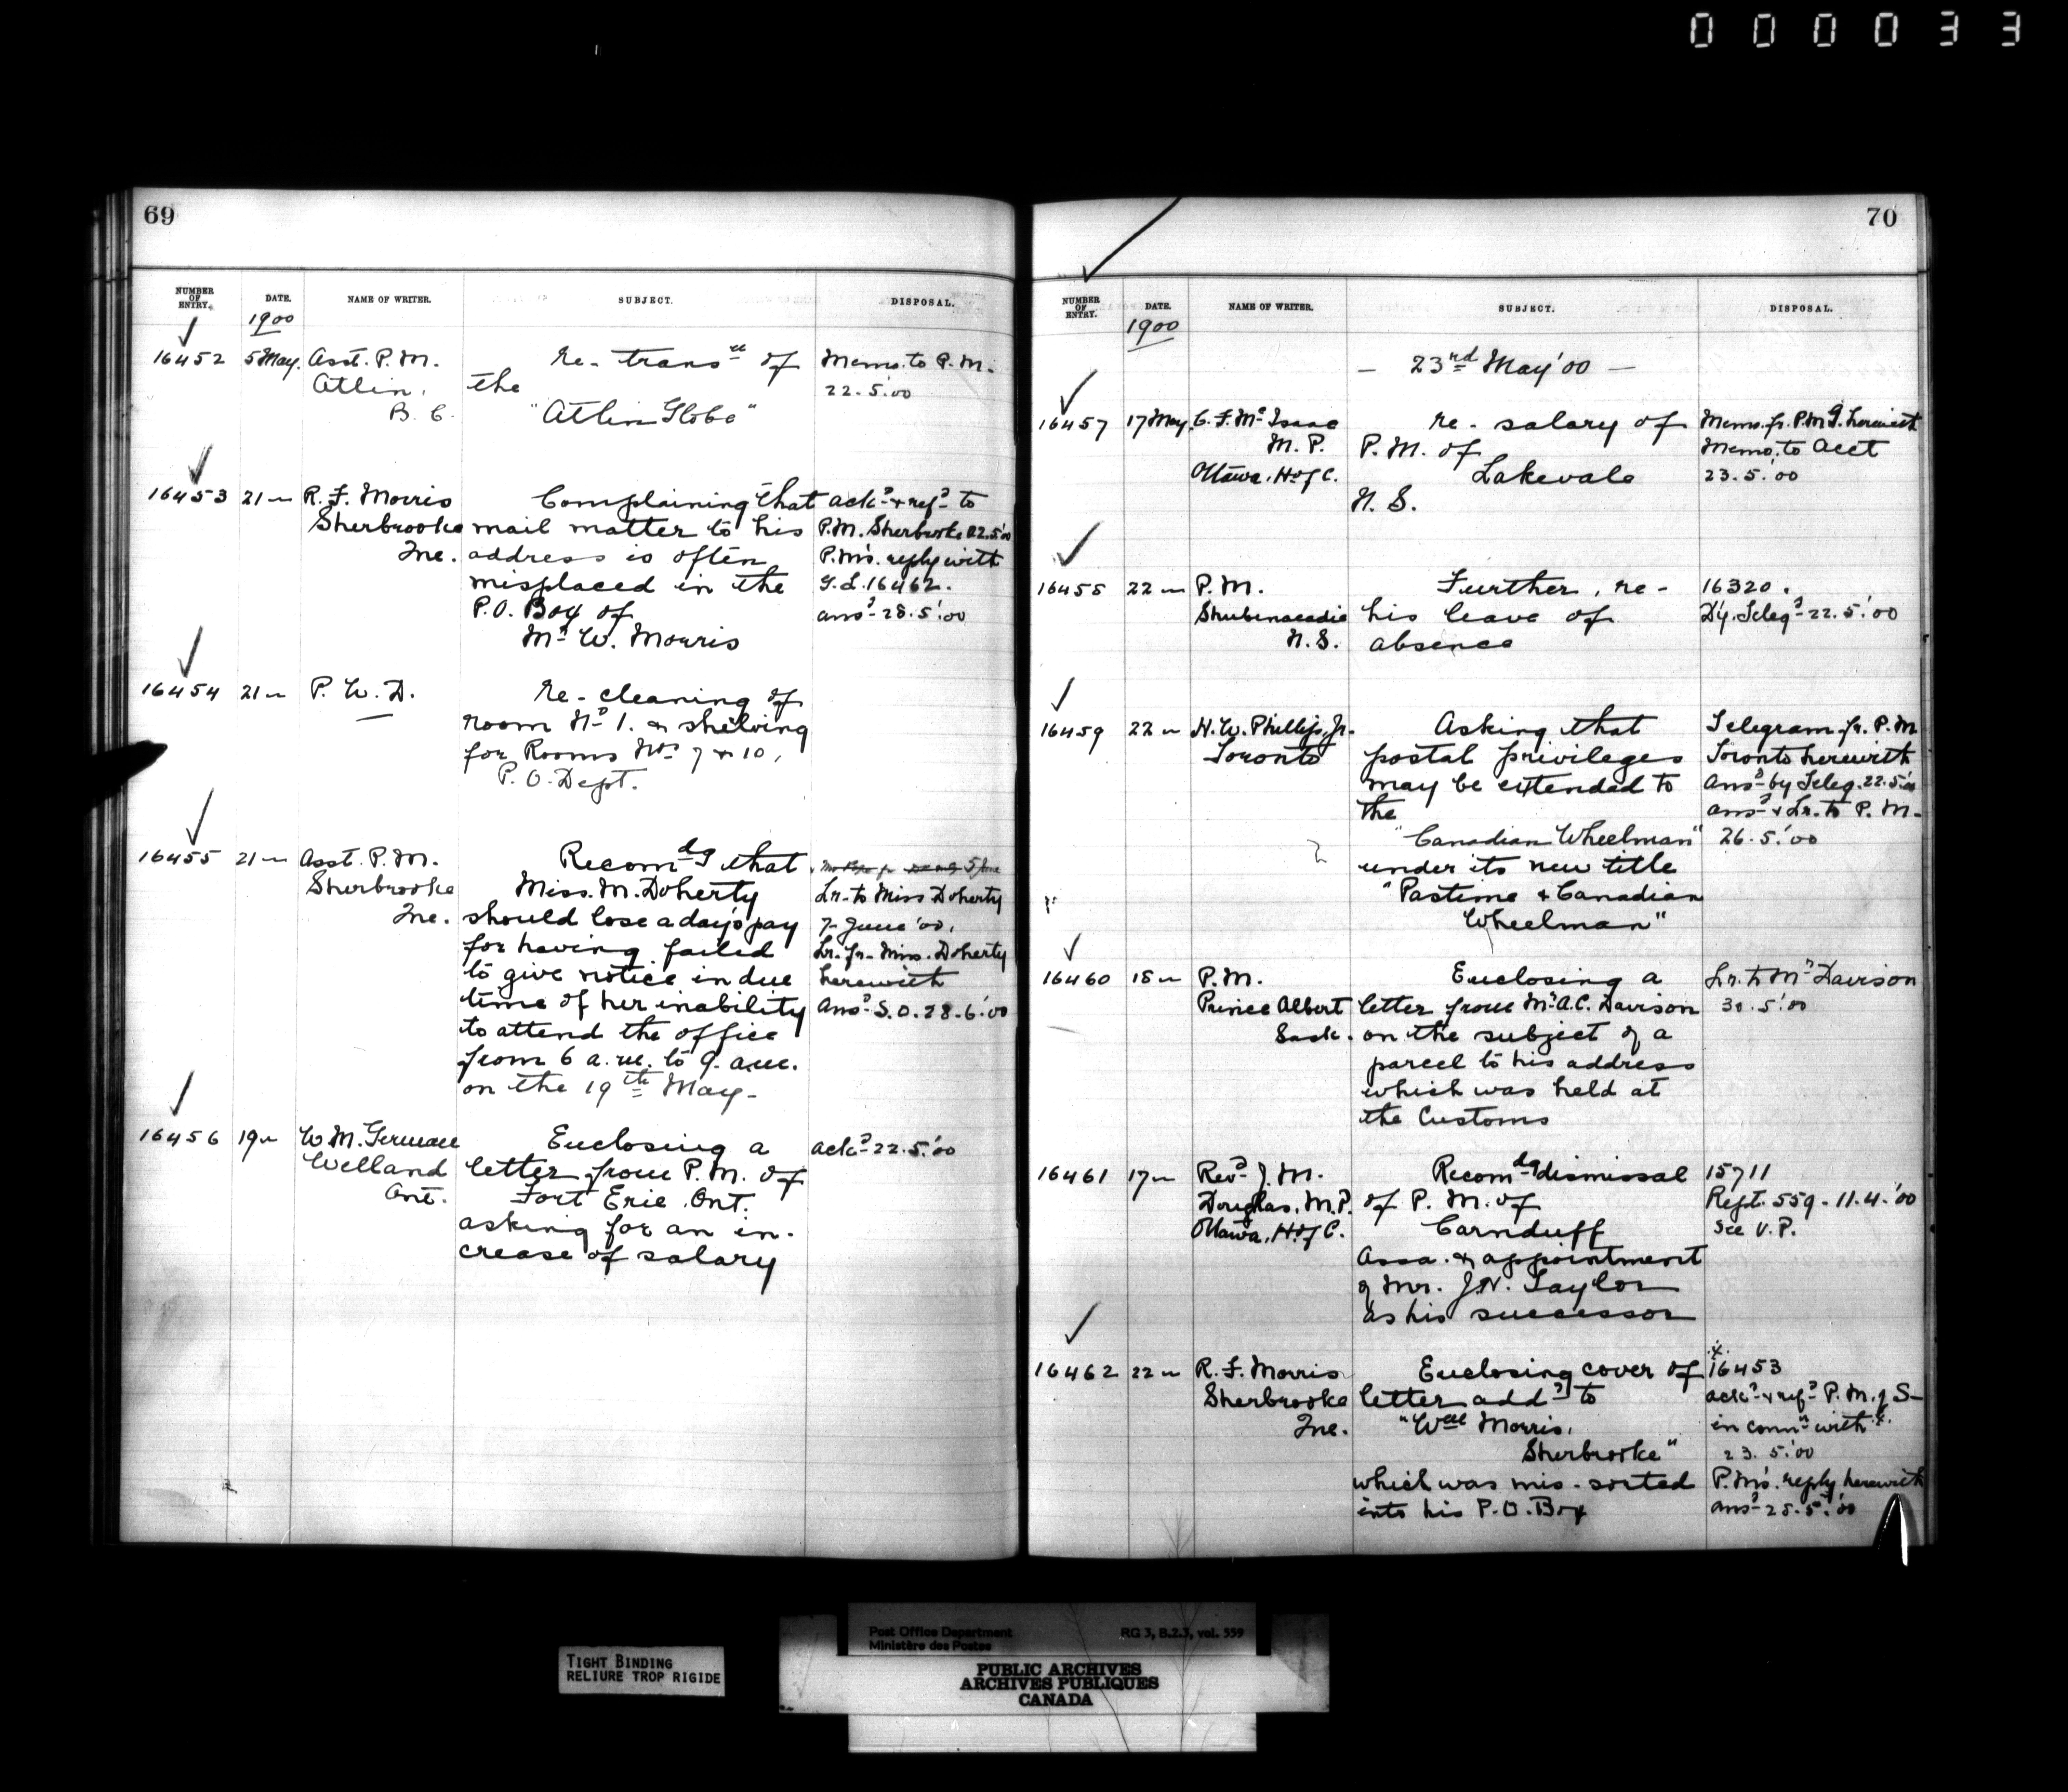 000033
69
NUMBER OF ENTRY. DATE. NAME OF WRITER. SUBJECT. DISPOSAL.
1900
16452 5 May. Asst. P. M. Re- trans^n of Memo. to P. M.
Atlin, the 22.5.'00
B. C. "Atlin Globe"
16453 21 " R. F. Morris Complaining that ack^d & ref^d to
Sherbrooke mail matter to his P.M. Sherbrooke 22.5.'00
Que. address is often P.M's. reply with
misplaced in the G.L. 16462.
P.O. Box of ans^d 28.5.'00
M^r W. Morris
16454 21 " P. W. D. Re- cleaning of
room N^o 1. & shelving
for Rooms N^os 7 & 10,
P. O. Dept.
16455 21 " Asst. P. M. Recom^dg that
Sherbrooke Miss. M. Doherty Lr. to Miss Doherty
Que. should lose a day's pay 7- June '00.
for having failed Lr. fr. Miss. Doherty
to give notice in due herewith
time of her inability Ans^d S.O. 28.6.'00
to attend the office
from 6 a.m. to 9. a.m.
on the 19th May-
16456 19 " W. M. German Enclosing a ack^d 22.5.'00
Welland letter from P. M. of
Ont. Fort Erie. Ont.
asking for an in-
crease of salary
70
NUMBER OF ENTRY. DATE. NAME OF WRITER. SUBJECT. DISPOSAL.
1900
- 23rd May '00 -
16457 17 May. C. F. M^c Isaac re- salary of Memo. fr. P.M.G. herewith
M. P. P. M. of Memo. to Acct
Ottawa. H. of C. Lakevale 23.5.'00
N. S.
16458 22 " P. M. Further, re- 16320.
Shubenacadie his leave of Dy. Teleg^d 22.5.'00
N. S. absence
16459 22 " H. W. Phillips, Jr. Asking that Telegram fr. P. M
Toronto postal privileges Toronto herewith
may be extended to Ans^d by Teleg. 22.5.'00
the ans^d & Lr. to P. M.
"Canadian Wheelman" 26.5.'00
under its new title
"Pastime & Canadian
Wheelman"
16460 18 " P. M. Enclosing a Lr. to M^r Davison
Prince Albert letter from M^r A.C. Davison 30.5.'00
Sask. on the subject of a
parcel to his address
which was held at
the Customs
16461 17 " Rev^d J. M. Recom^dg dismissal 15711
Douglas, M.P. of P. M. of Rept. 559 - 11.4.'00
Ottawa, H. of C. Carnduff See V. P.
Assa. & appointment
of Mr. J.N. Taylor
as his successor
16462 22 " R. F. Morris Enclosing cover of 16453
Sherbrooke letter add^d to ack^d & ref^d P. M. of S-
Que. "W^m Morris, in conn^n with
Sherbrooke" 23.5.'00
which was mis-sorted P.M's. reply herewith
into his P.O. Box ans^d 28.5.'00
Post Office Department RG 3, B.2.3, vol. 559
Ministère des Postes
TIGHT BINDING
RELIURE TROP RIGIDE
PUBLIC ARCHIVES
ARCHIVES PUBLIQUES
CANADA